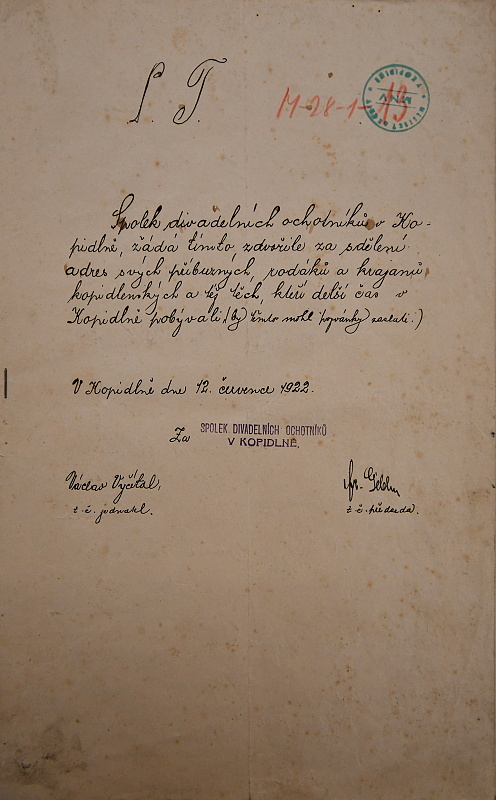 P. T.
M-28-1-13
MNV
Spolek divadelních ochotníků v Ko-
pidlně, žádá tímto zdvořile za sdělení
adres svých příbuzných, rodáků a krajanů
kopidlenských a téj těch, kteří delší čas v
Kopidlně pobývali (by jimto mohl pozvánky zaslati.)
V Kopidlně dne 12. července 1922.
Za SPOLEK DIVADELNÍCH OCHOTNÍKŮ
V KOPIDLNĚ.
Václav Vyčítal, 
t. č. jednatel.
t. č. předseda.